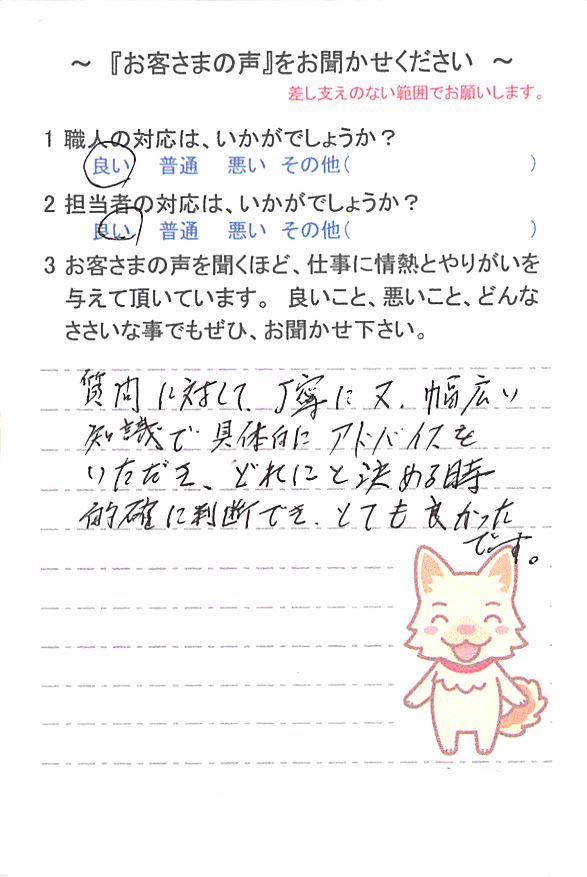 ～ 『お客さまの声』をお聞かせください ～
差し支えのない範囲でお願いします。
1 職人の対応は、いかがでしょうか？
良い 普通 悪い その他( )
2 担当者の対応は、いかがでしょうか？
良い 普通 悪い その他( )
3 お客さまの声を聞くほど、仕事に情熱とやりがいを
与えて頂いています。 良いこと、悪いこと、どんな
ささいな事でもぜひ、お聞かせ下さい。
質問に対して、丁寧に又、幅広い
知識で具体的にアドバイスを
いただき、どれにと決める時
的確に判断でき、とても良かった
です。